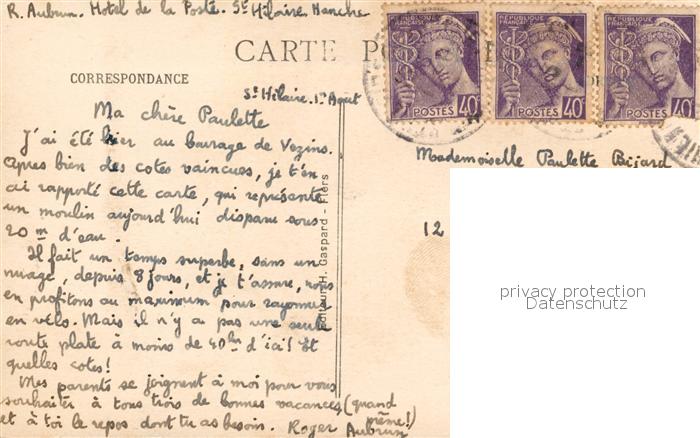 R. Aubrun. Hotel de la Poste. St Hilaire Manche
CARTE PO
CORRESPONDANCE
RÉPUBLIQUE FRANÇAISE
POSTES 40c
RÉPUBLIQUE FRANÇAISE
POSTES 40c
RÉPUBLIQUE FRANÇAISE
POSTES 40c
St Hilaire. 1er Aout
Ma chère Paulette
J'ai été hier au barrage de Vezins.
Après bien des cotes vaincues, je t'en
ai rapporté cette carte, qui représente
un moulin aujourd'hui disparu sous
20 m d'eau.
Il fait un temps superbe, sans un
nuage, depuis 8 jours, et je t'assure, nous
en profitons au maximum pour rayonner
en vélo. Mais il n'y a pas une seule
route plate à moins de 40km d'ici! Et
quelles cotes!
Mes parents se joignent à moi pour vous
souhaiter à tous trois de bonnes vacances (quand
même!)
et à toi le repos dont tu as besoin. Roger
Aubrun
Editeur, H. Gaspard - Flers
Mademoiselle Paulette Bijard
12
privacy protection
Datenschutz